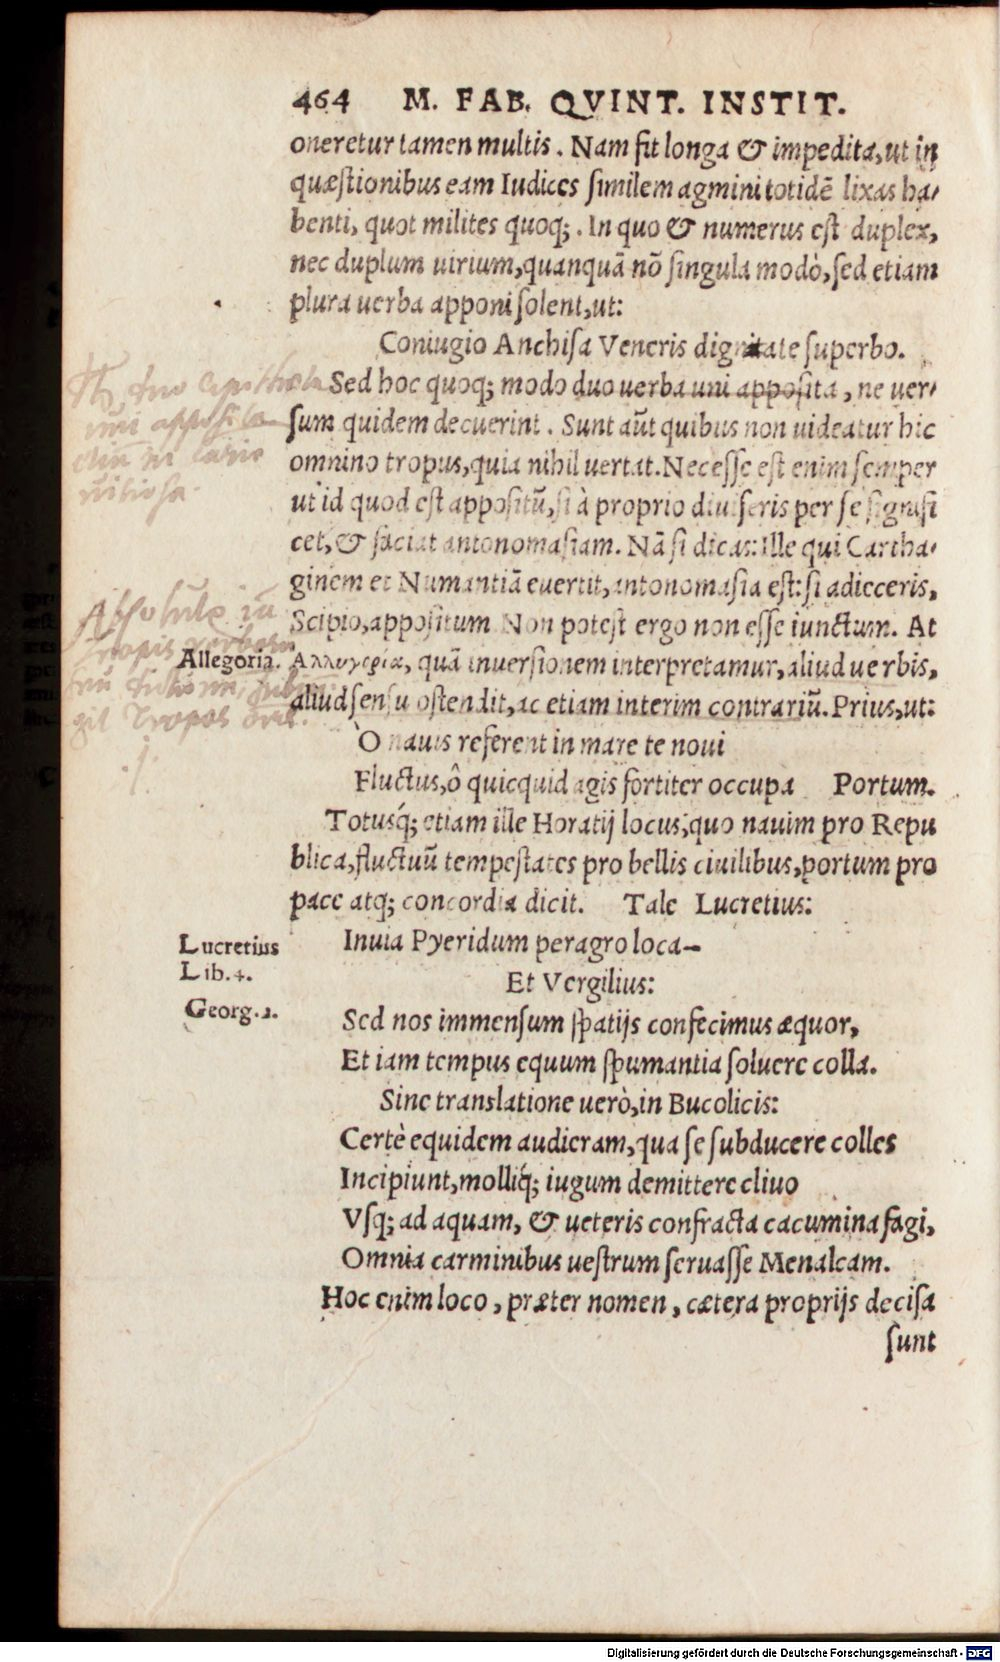 464 M. FAB. QVINT. INSTIT.
oneretur tamen multis. Nam fit longa & impedita, ut in
quæſtionibus eam Iudices ſimilem agmini totidē lixas ha-
benti, quot milites quoq;. In quo & numerus eſt duplex,
nec duplum uirium, quanquā nō ſingula modò, ſed etiam
plura uerba apponi ſolent, ut:
Coniugio Anchiſa Veneris dignitate ſuperbo.
Sed hoc quoq; modo duo uerba uni appoſita, ne uer-
ſum quidem decuerint. Sunt aūt quibus non uideatur hic
omnino tropus, quia nihil uertat. Neceſſe eſt enim ſemper
ut id quod eſt appoſitū, ſi à proprio diuiſeris per ſe ſignifi
cet, & faciat antonomaſiam. Nā ſi dicas: Ille qui Cartha-
ginem et Numantiā euertit, antonomaſia eſt: ſi adieceris,
Scipio, appoſitum Non poteſt ergo non eſſe iunctum. At
Allegoria. Αλληγορία, quā inuerſionem interpretamur, aliud uerbis,
aliud ſenſu oſtendit, ac etiam interim contrariū. Prius, ut:
O nauis referent in mare te noui
Fluctus, ô quicquid agis fortiter occupa Portum.
Totusq́; etiam ille Horatij locus, quo nauim pro Repu
blica, fluctuū tempeſtates pro bellis ciuilibus, portum pro
pace atq; concordia dicit. Tale Lucretius:
Lucretius Lib. 4.
Inuia Pyeridum peragro loca—
Et Vergilius:
Georg. 2.
Sed nos immenſum ſpatijs confecimus æquor,
Et iam tempus equum ſpumantia ſoluere colla.
Sine translatione uerò, in Bucolicis:
Certè equidem audieram, qua ſe ſubducere colles
Incipiunt, molliq́; iugum demittere cliuo
Vſq; ad aquam, & ueteris confracta cacumina fagi,
Omnia carminibus ueſtrum ſeruaſſe Menalcam.
Hoc enim loco, præter nomen, cætera proprijs deciſa
ſunt
Digitalisierung gefördert durch die Deutsche Forschungsgemeinschaft - DFG